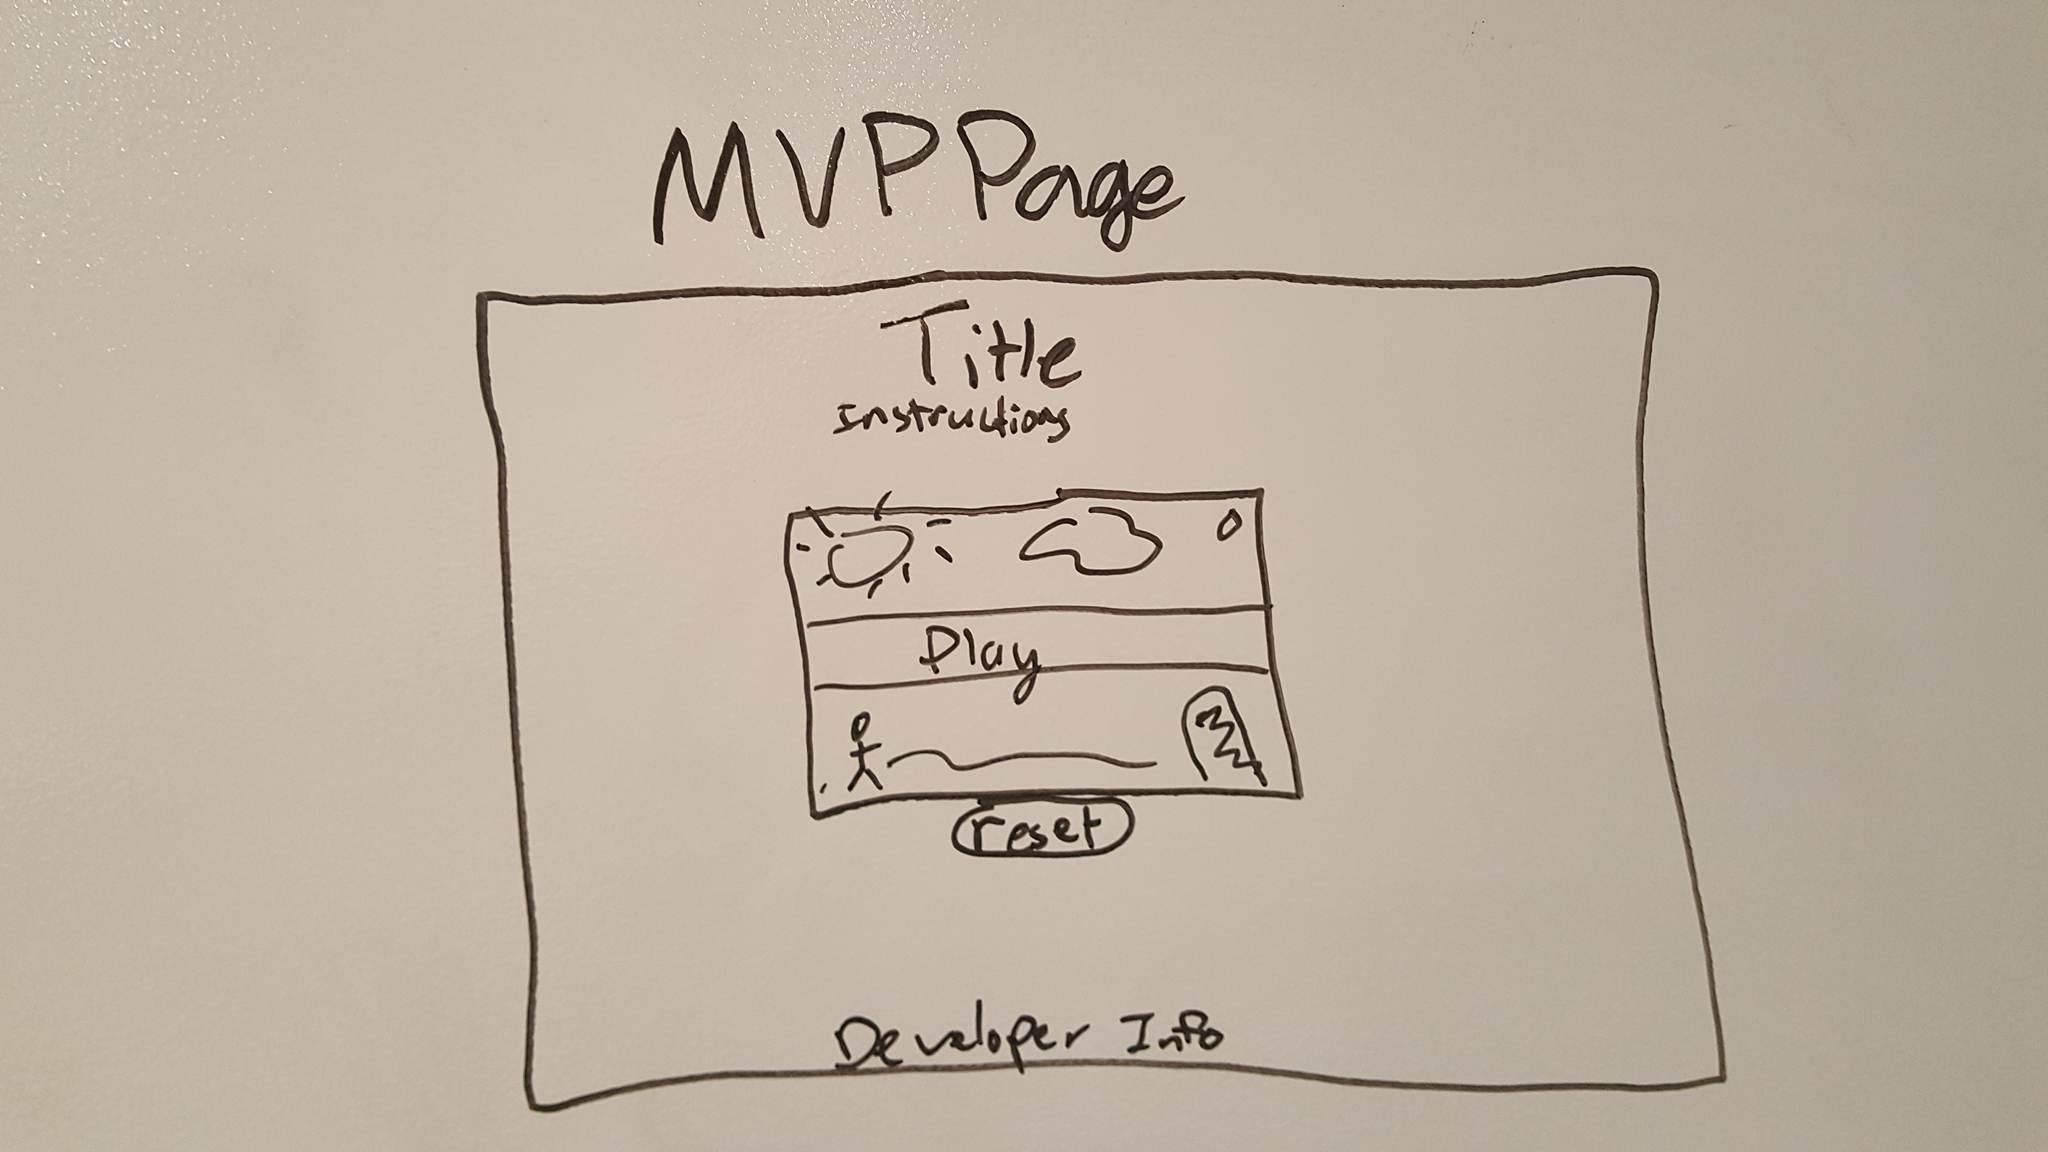 MVP Page
Title
Instructions
0
Play
reset
Developer Info